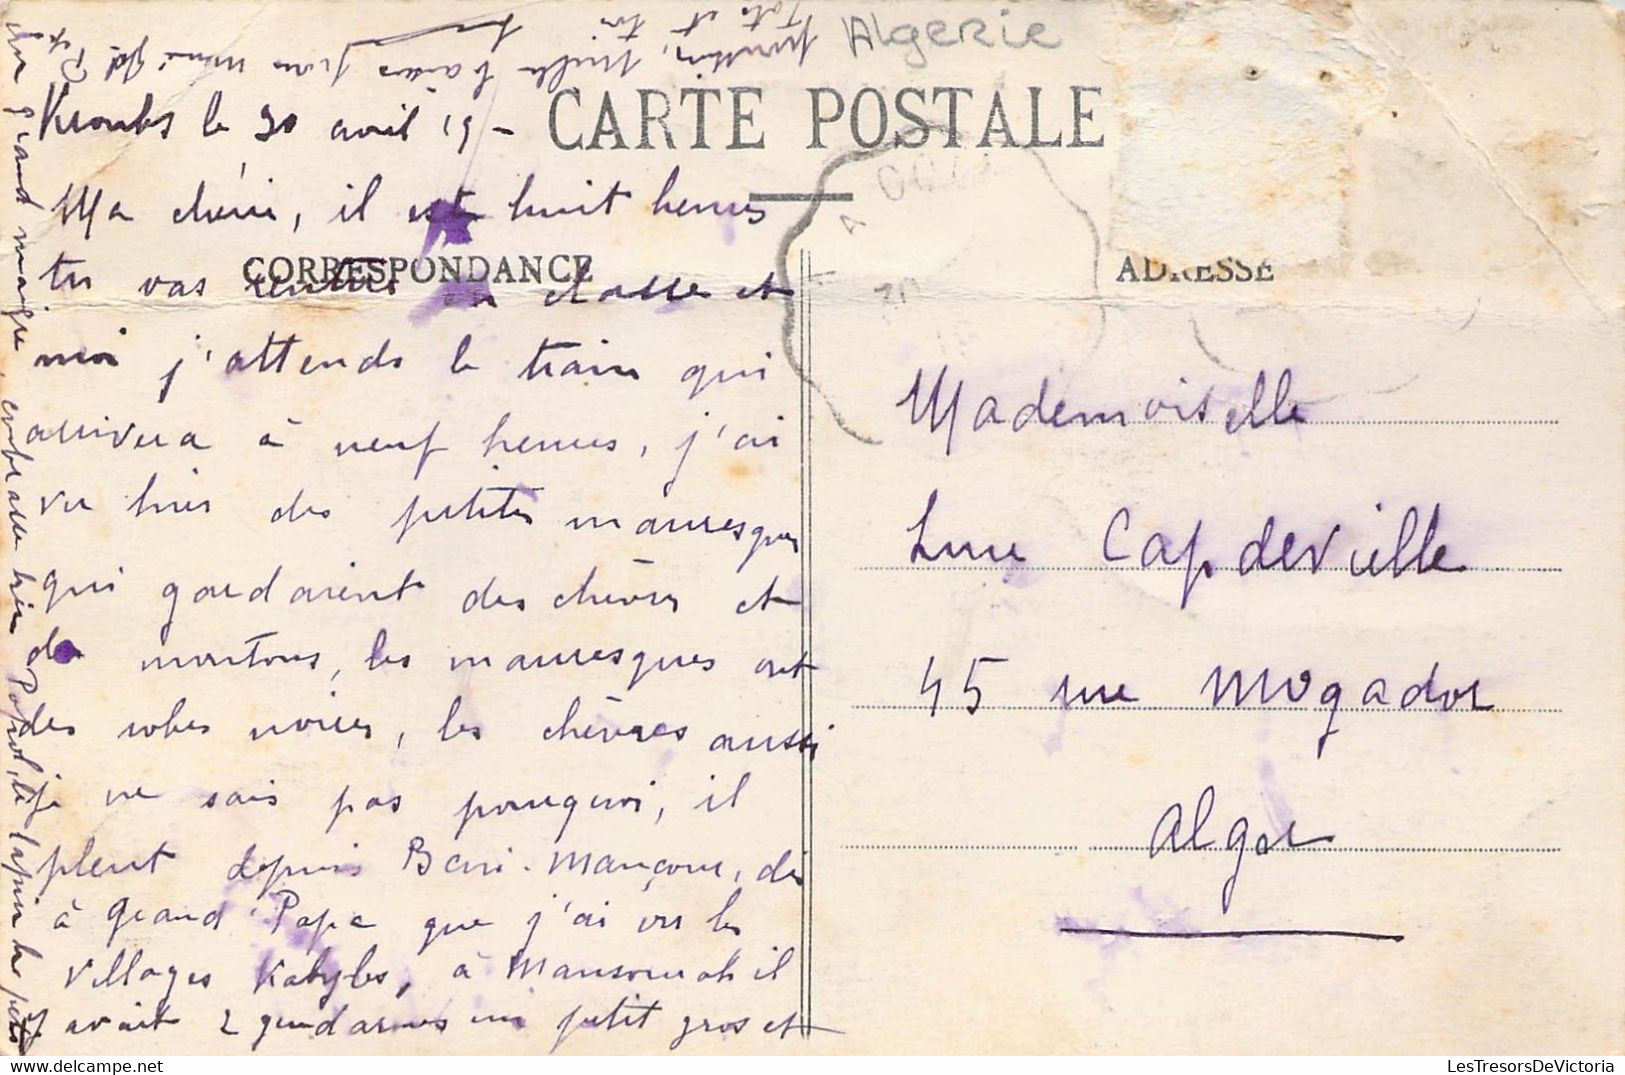 Algerie
CARTE POSTALE
CORRESPONDANCE
ADRESSE
Kroubs le 30 avril 19 -
Ma chérie, il est huit heures
tu vas rentrer en classe et
moi j'attends le train qui
arrivera à neuf heures, j'ai
vu hier des petites mauresques
qui gardaient des chèvres et
des moutons, les mauresques ont
des robes noires, les chèvres aussi
je ne sais pas pourquoi, il
pleut depuis Beni-Mançour, dis
à Grand Papa que j'ai vu les
villages Kabyles, à Mansourah il
y avait 2 gendarmes un petit gros et
un grand maigre, embrasse bien le lapin le petit
mille baisers pour mémé
toto et toi
Mademoiselle
Lucie Capdeville
45 rue Mogador
Alger
LesTresorsDeVictoria.com